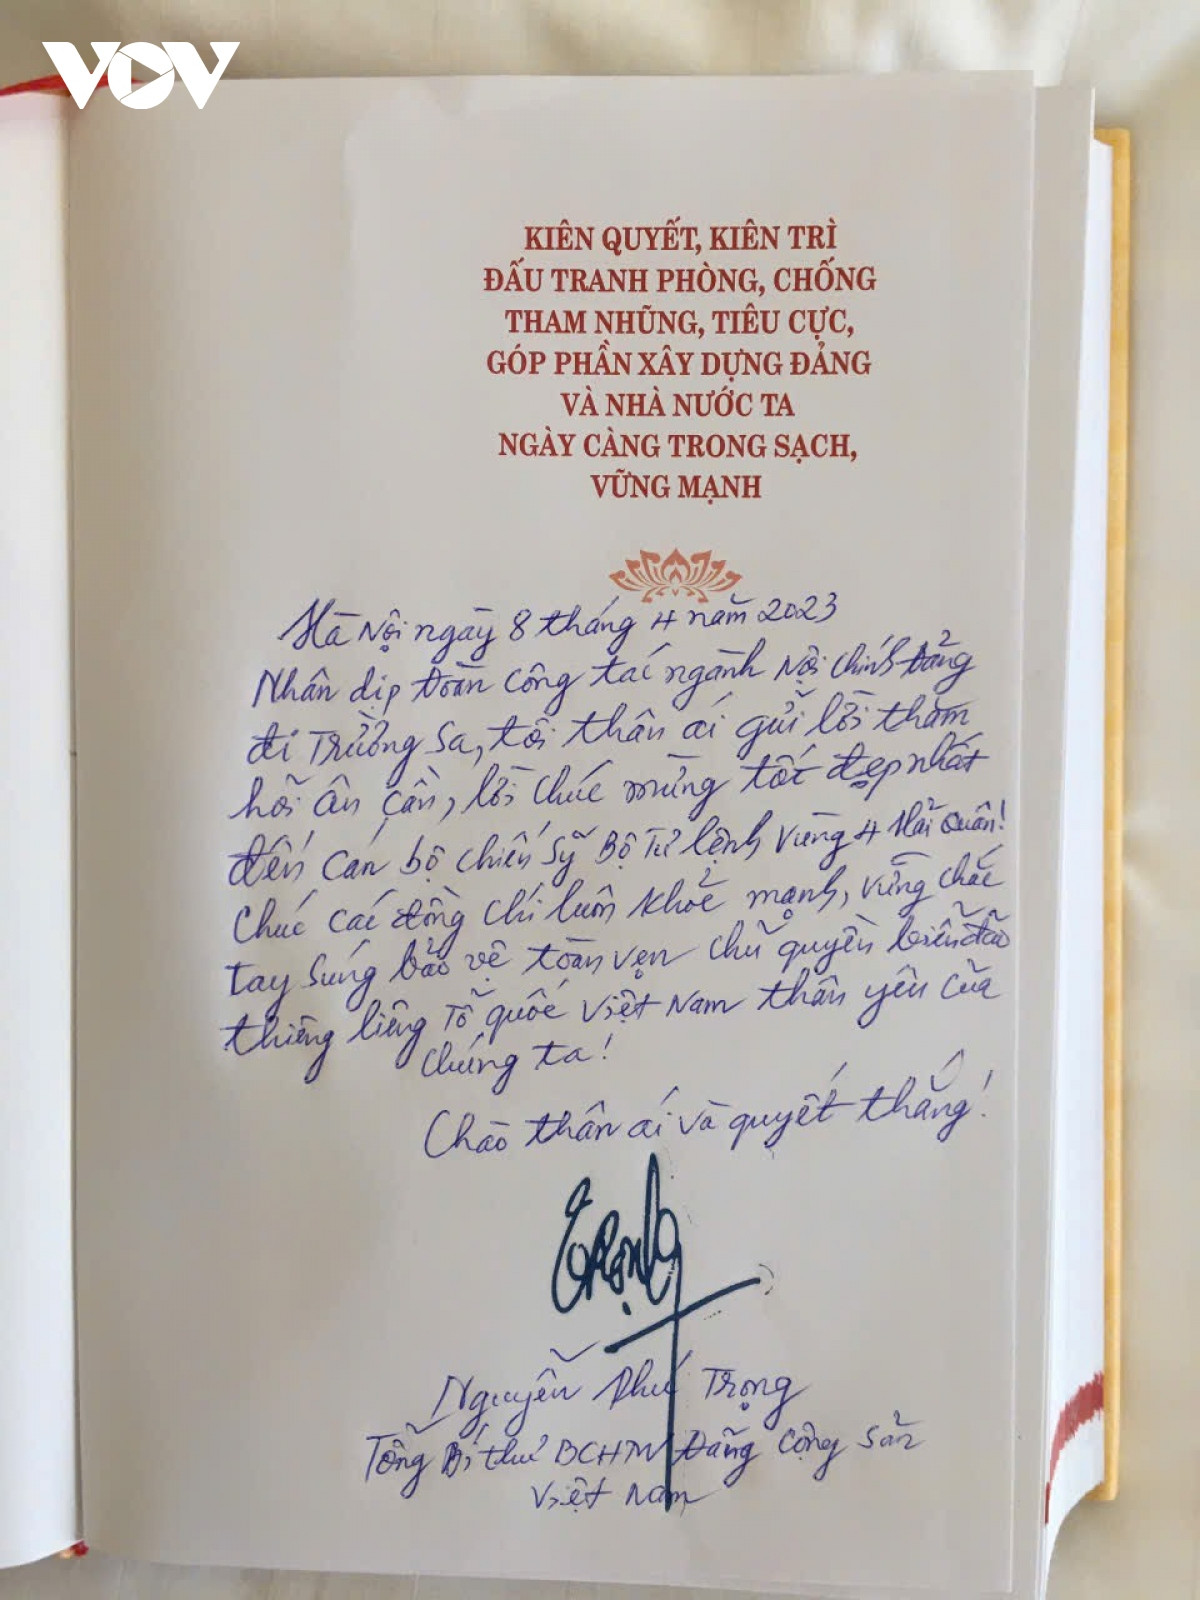 VOV
KIÊN QUYẾT, KIÊN TRÌ
ĐẤU TRANH PHÒNG, CHỐNG
THAM NHŨNG, TIÊU CỰC,
GÓP PHẦN XÂY DỰNG ĐẢNG
VÀ NHÀ NƯỚC TA
NGÀY CÀNG TRONG SẠCH,
VỮNG MẠNH
Hà Nội ngày 8 tháng 4 năm 2023
Nhân dịp Đoàn công tác ngành Nội chính Đảng
đi Trường Sa, tôi thân ái gửi lời thăm
hỏi ân cần, lời chúc mừng tốt đẹp nhất
đến cán bộ chiến sỹ Bộ Tư lệnh Vùng 4 Hải Quân!
Chúc các đồng chí luôn khỏe mạnh, vững chắc
tay súng bảo vệ toàn vẹn chủ quyền biển đảo
thiêng liêng Tổ quốc Việt Nam thân yêu của
chúng ta!
Chào thân ái và quyết thắng!
Trọng
Nguyễn Phú Trọng
Tổng Bí thư BCHTW Đảng Cộng Sản
Việt Nam